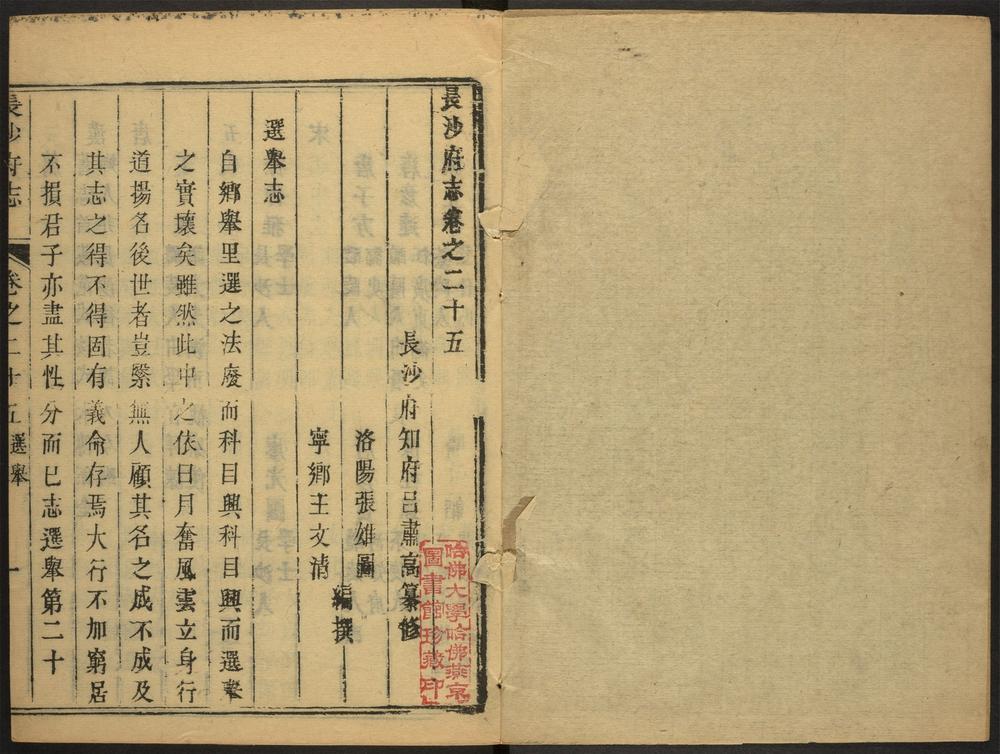 長沙府志卷之二十五
長沙府知府呂肅高纂修
洛陽張雄圖
寧鄉王文清
編撰
選舉志
自鄉舉里選之法廢而科目興科目興而選舉
之實壞矣雖然此中之依日月奮風雲立身行
道揚名後世者豈繄無人顧其名之成不成及
其志之得不得固有義命存焉大行不加窮居
不損君子亦盡其性分而已志選舉第二十
長沙府志
卷之二十五
選舉
一
哈佛大學哈佛燕京
圖書館珍藏印